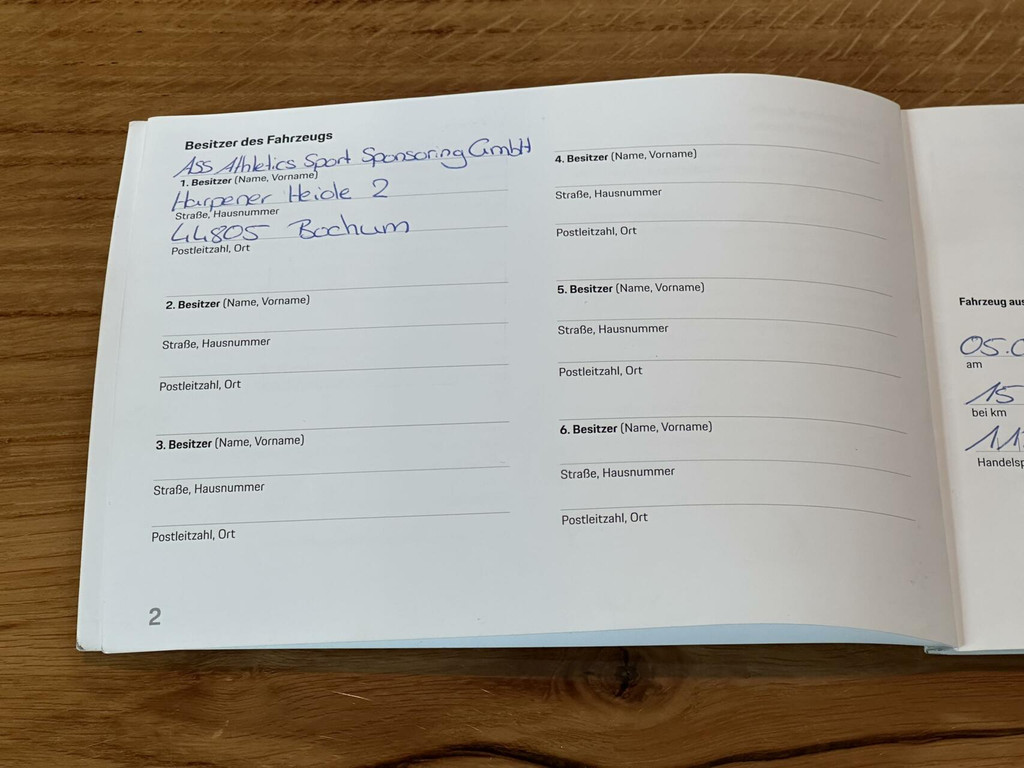 Besitzer des Fahrzeugs
ASS Athletics Sport Sponsoring GmbH
1. Besitzer (Name, Vorname)
Harpener Heide 2
Straße, Hausnummer
44805 Bochum
Postleitzahl, Ort
2. Besitzer (Name, Vorname)
Straße, Hausnummer
Postleitzahl, Ort
3. Besitzer (Name, Vorname)
Straße, Hausnummer
Postleitzahl, Ort
2
4. Besitzer (Name, Vorname)
Straße, Hausnummer
Postleitzahl, Ort
5. Besitzer (Name, Vorname)
Straße, Hausnummer
Postleitzahl, Ort
6. Besitzer (Name, Vorname)
Straße, Hausnummer
Postleitzahl, Ort
Fahrzeug aus
05.0
am
15
bei km
11
Handelsp